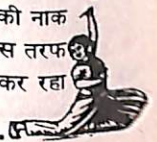 की नाक
स तरफ
कर रहा